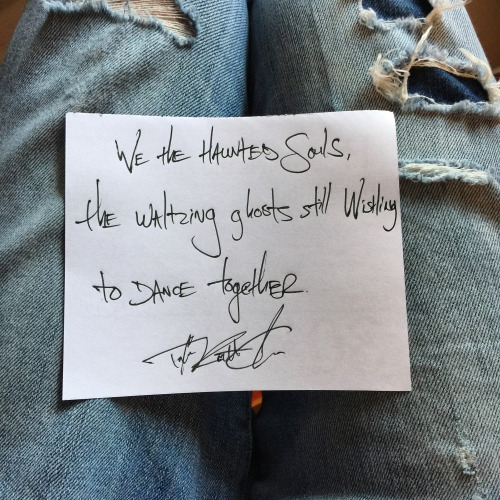 We the Haunted Souls,
the waltzing ghosts still Wishing
to DANCE together.